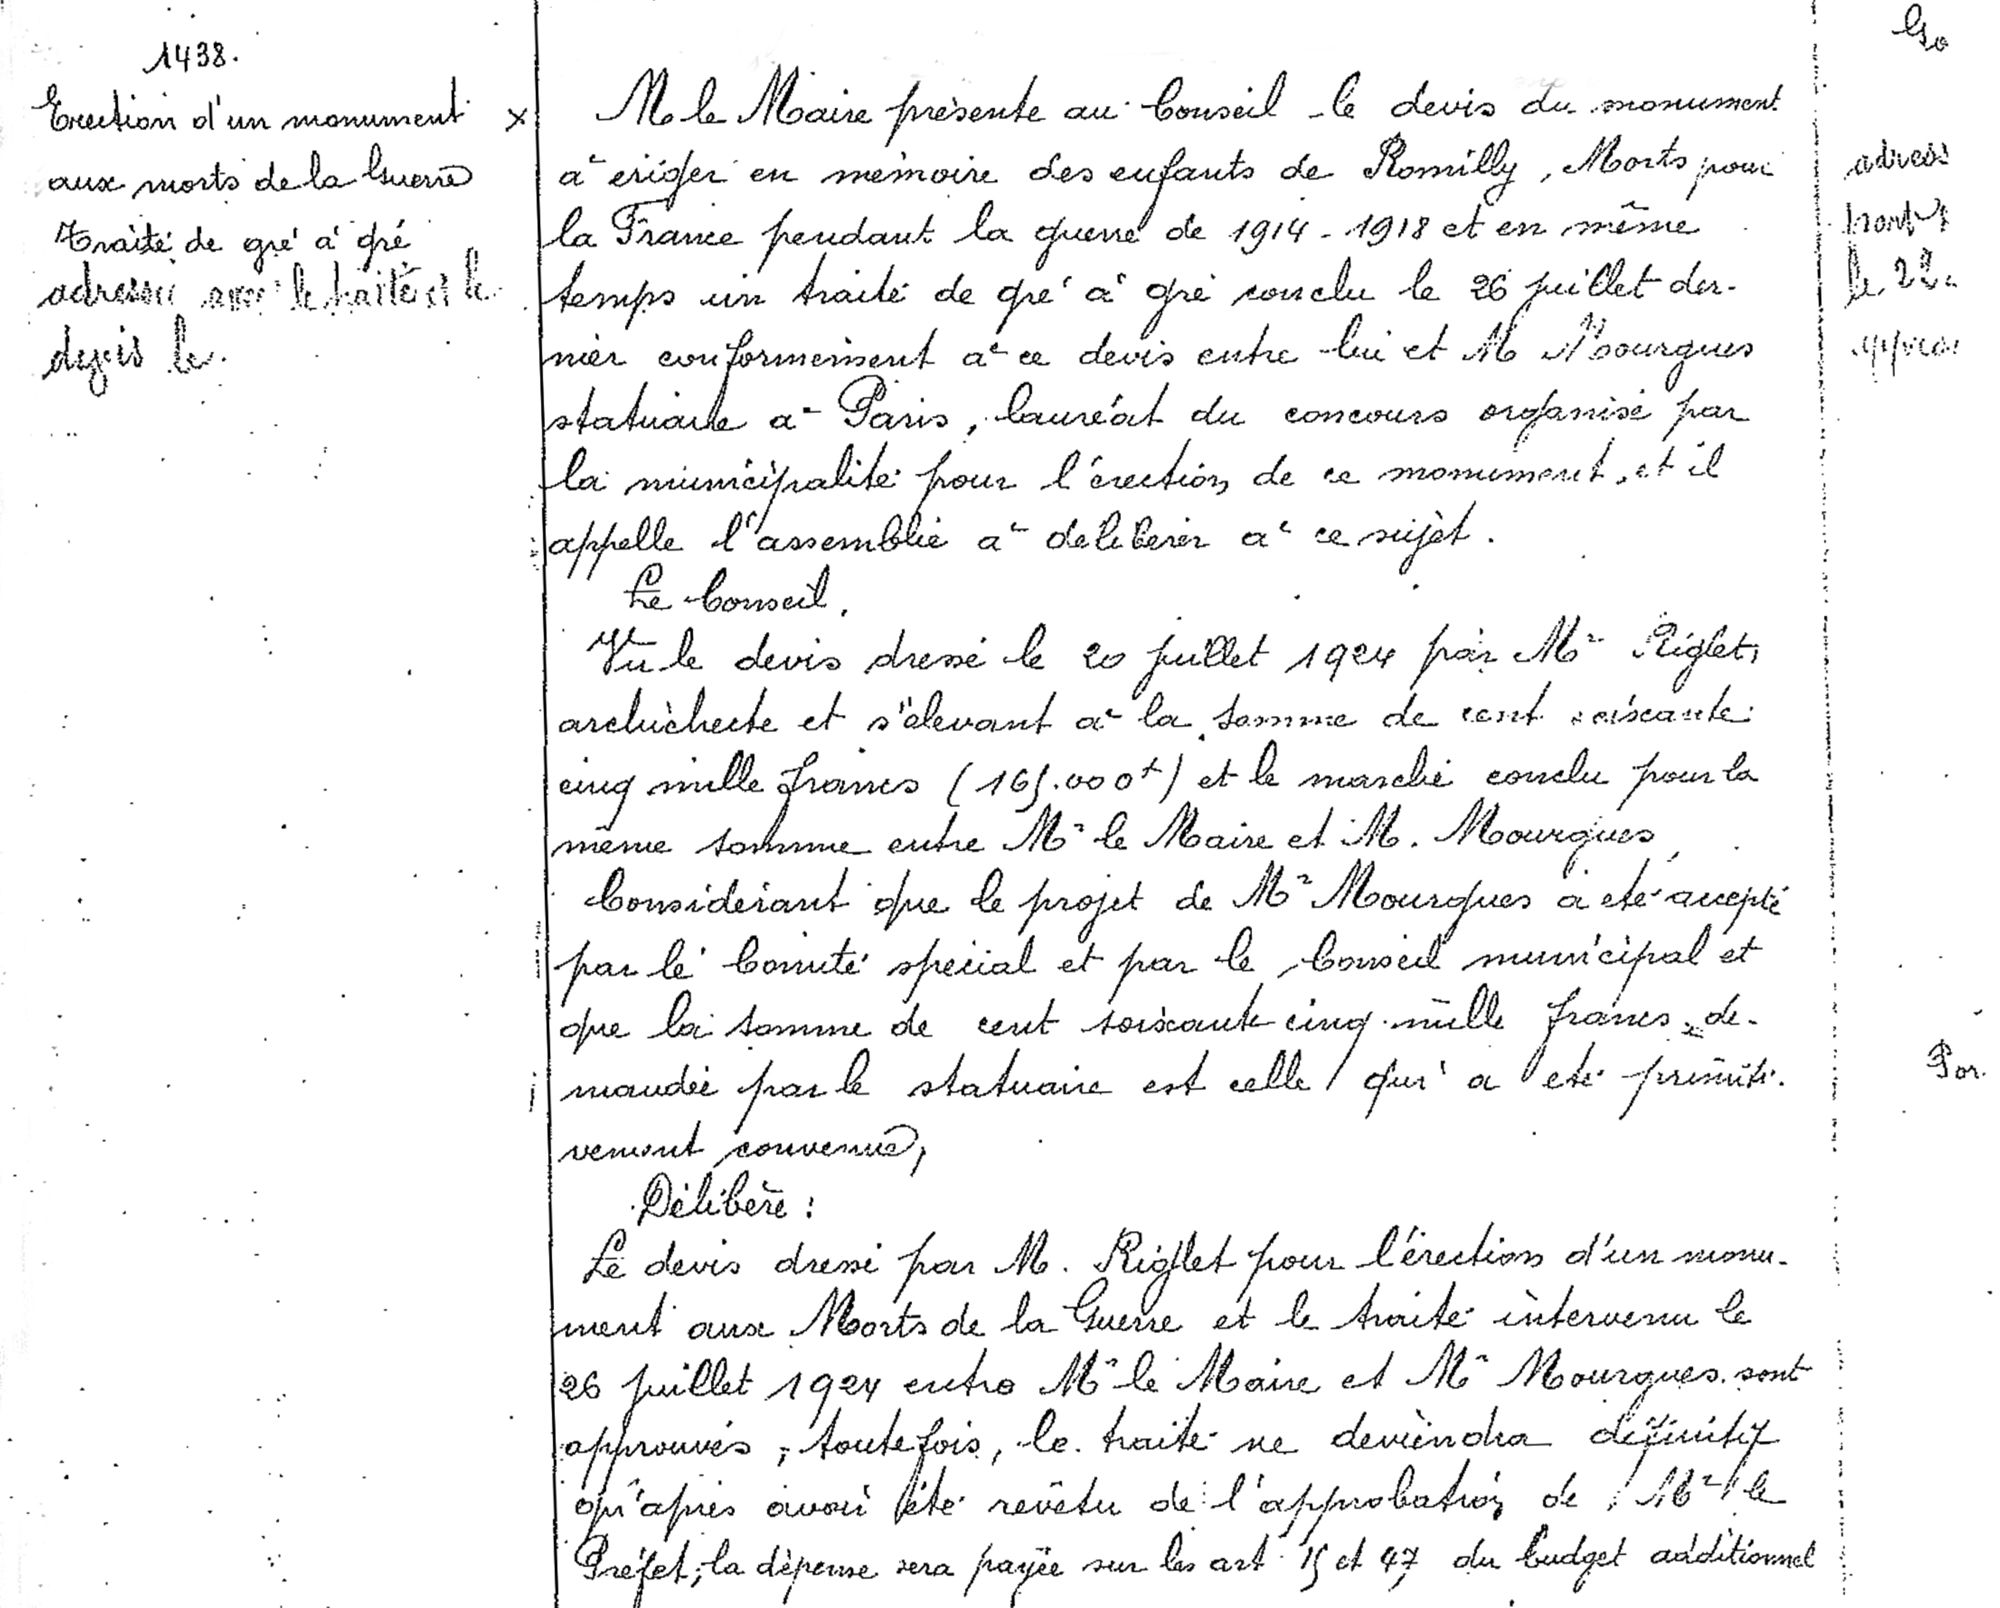 1438.
Erection d'un monument
aux morts de la Guerre
Traité de gré à gré
adressé avec le traité et le
devis le.
×
M le Maire présente au Conseil le devis du monument
à ériger en mémoire des enfants de Romilly, Morts pour
la France pendant la guerre de 1914-1918 et en même
temps un traité de gré à gré conclu le 26 juillet der-
nier conformément à ce devis entre lui et M Mourgues
statuaire à Paris, lauréat du concours organisé par
la municipalité pour l'érection de ce monument, et il
appelle l'assemblée à délibérer à ce sujet.
Le Conseil,
Vu le devis dressé le 20 juillet 1924 par Mr Riglet,
architecte et s'élevant à la somme de cent soixante
cinq mille francs (165.000f) et le marché conclu pour la
même somme entre Mr le Maire et M. Mourgues,
Considérant que le projet de Mr Mourgues a été accepté
par le Comité spécial et par le Conseil municipal et
que la somme de cent soixante cinq mille francs de-
mandée par le statuaire est celle qui a été primiti-
vement convenue,
Délibère :
Le devis dressé par M. Riglet pour l'érection d'un monu-
ment aux Morts de la Guerre et le traité intervenu le
26 juillet 1924 entre Mr le Maire et Mr Mourgues sont
approuvés ; toutefois, le traité ne deviendra définitif
qu'après avoir été revêtu de l'approbation de Mr le
Préfet ; la dépense sera payée sur les art 15 et 47 du budget additionnel
adress
le 22
Por.